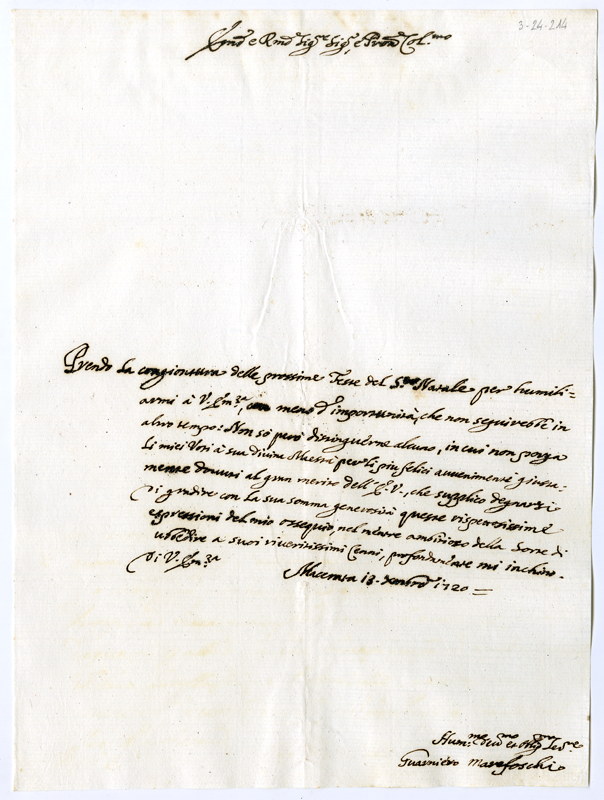 3-24-214
Em.o e Rmo Sig.re Sig.re e Pron Col.mo
Prendo la congiontura delle prossime Feste del S.mo Natale per humili=
armi à V. Em.za, con meno d'importunità, che non seguirebbe in
altro tempo: Non só però distinguerne alcuno, in cui non porga
li miei Voti à sua divina Maestà per li piu felici avvenimenti giusta=
mente dovuti al gran merito dell'E.V., che supplico degnarsi
di gradire con la sua somma generosità queste rispettosissime
espressioni del mio ossequio, nel mentre ambizioso della sorte di
ubbedire a suoi riveritissimi Cenni, profondamente mi inchino.
Di V. Em.za
Macerata 13. Xembre 1720=
Hum.me et Serre
Guarniero Marefoschi